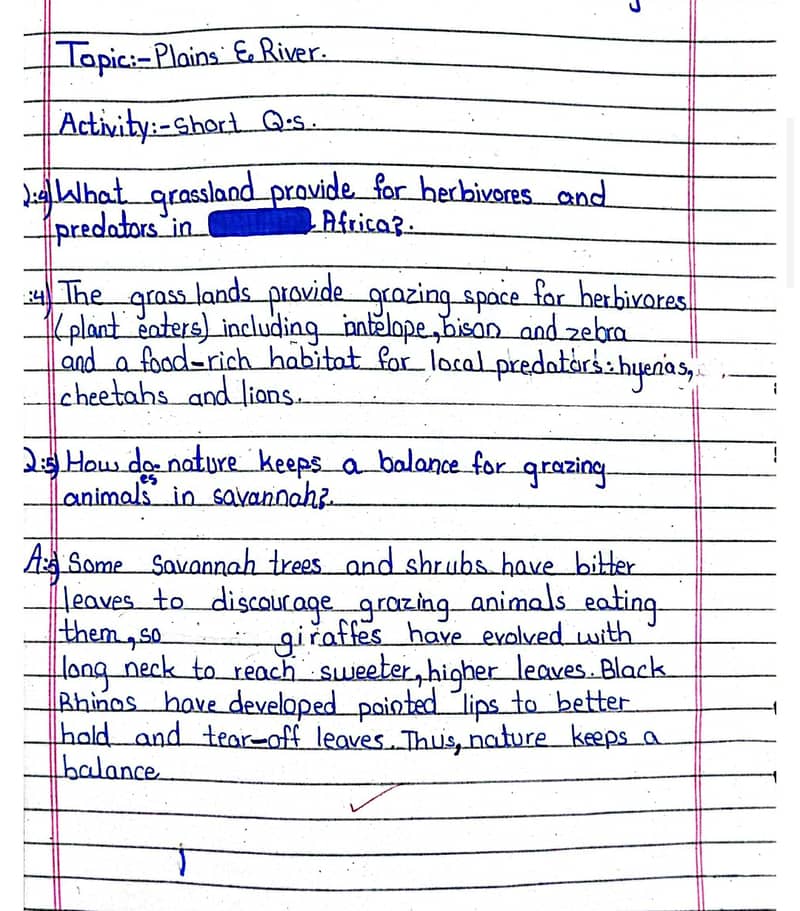 Topic:- Plains & River.
Activity:- Short Q.s.
Q:4) What grassland provide for herbivores and
predators in Africa?.
:4) The grass lands provide grazing space for herbivores
(plant eaters) including antelope, bison and zebra
and a food-rich habitat for local predators: hyenas,
cheetahs and lions.
Q:5) How do nature keeps a balance for grazing
es
animals in savannah?.
A:5) Some savannah trees and shrubs have bitter
leaves to discourage grazing animals eating
them, so giraffes have evolved with
long neck to reach sweeter, higher leaves. Black
Rhinos have developed pointed lips to better
hold and tear-off leaves. Thus, nature keeps a
balance